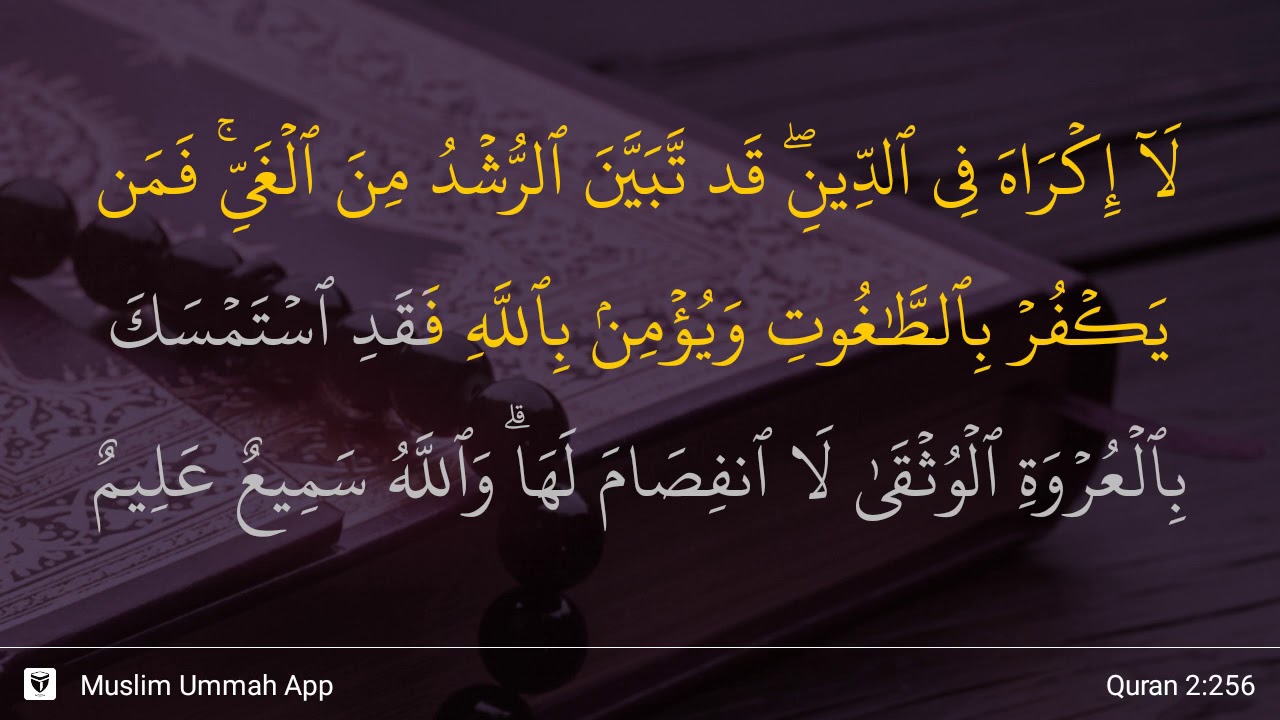 لَآ إِكْرَاهَ فِى ٱلدِّينِ ۖ قَد تَّبَيَّنَ ٱلرُّشْدُ مِنَ ٱلْغَىِّ ۚ فَمَن
يَكْفُرْ بِٱلطَّٰغُوتِ وَيُؤْمِنۢ بِٱللَّهِ فَقَدِ ٱسْتَمْسَكَ
بِٱلْعُرْوَةِ ٱلْوُثْقَىٰ لَا ٱنفِصَامَ لَهَا ۗ وَٱللَّهُ سَمِيعٌ عَلِيمٌ
Muslim Ummah App
Quran 2:256